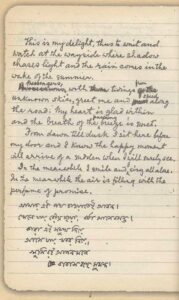 This is my delight, thus to wait and
watch at the wayside where shadow
chases light and the rain comes in the
wake of the summer.
Messengers with tidings from
unknown skies, greet me and along
the road. My heart is glad within
and the breath of the passing breeze is sweet.
From dawn till dusk I sit here before
my door and I know the happy moment
will arrive of a sudden when I shall surely see.
In the meanwhile I smile and sing all alone.
In the meanwhile the air is filling with the
perfume of promise.
আমার এই পথ চাওয়াতেই আনন্দ।
খেলে যায় রৌদ্র ছায়া, বর্ষা আসে বসন্ত।
কারা এই সমুখ দিয়ে
আসে যায় খবর নিয়ে
খুশি রই আপন মনে
বাতাস বহে সুমন্দ।